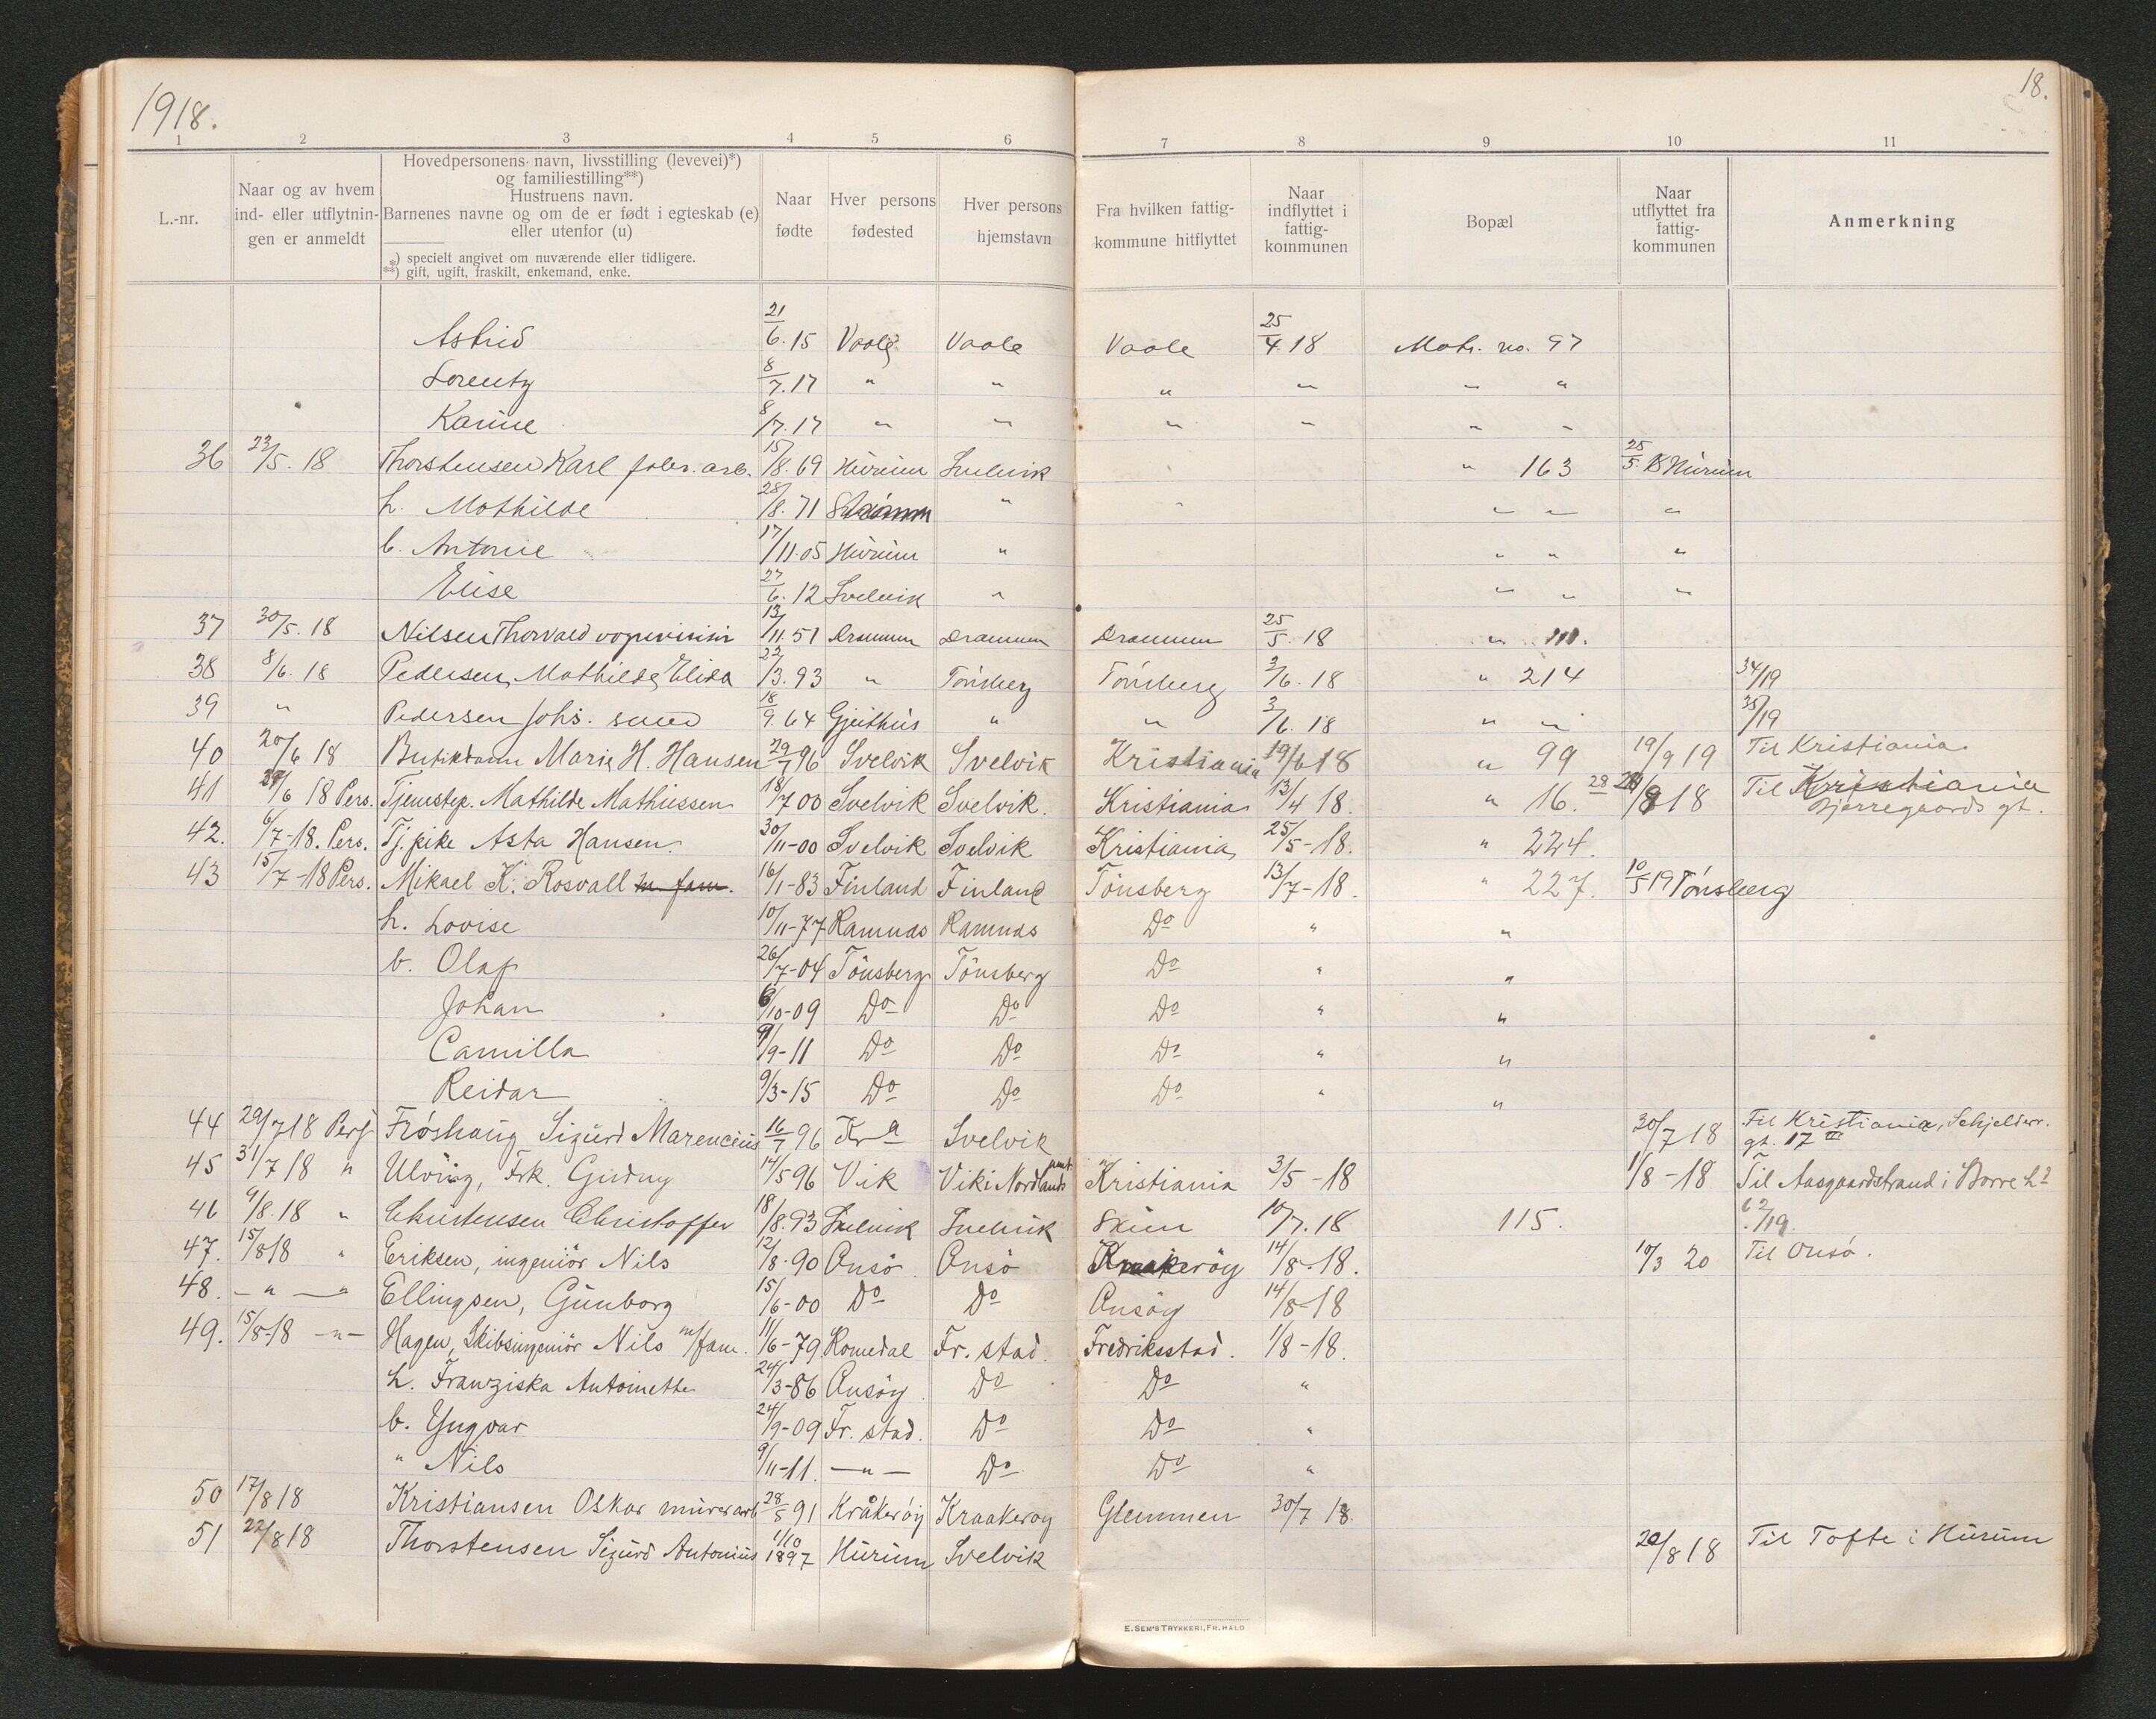 1918.
18.
1 2 3 4 5 6 7 8 9 10 11
L.-nr.
Naar og av hvem
ind- eller utflytnin-
gen er anmeldt
Hovedpersonens navn, livsstilling (levevei)*)
og familiestilling**)
Hustruens navn.
Barnenes navne og om de er født i egteskab (e)
eller utenfor (u)
*) specielt angivet om nuværende eller tidligere.
**) gift, ugift, fraskilt, enkemand, enke.
Naar
fødte
Hver persons
fødested
Hver persons
hjemstavn
Fra hvilken fattig-
kommune hitflyttet
Naar
indflyttet i
fattig-
kommunen
Bopæl
Naar
utflyttet fra
fattig-
kommunen
Anmerkning
Astrid 21/6. 15 Vaale Vaale Vaale 25/4. 18 Matr. no. 97
Lorentz 8/7. 17 " " " " " "
Karine 8/7. 17 " " " " " "
36 23/5. 18 Thorstensen Karl fabr. arb. 15/8. 69 Hurum Svelvik " 163 25/5. 18 Hurum
h. Mathilde 28/8. 71 Strømm " " " " "
b. Antonie 17/11. 05 Hurum " " " "
Elise 27/6. 12 Svelvik " " " "
37 30/5. 18 Nilsen Thorvald 13/11. 51 Drammen Drammen Drammen 25/5. 18 " 111.
38 8/6. 18 Pedersen, Mathilde Elida 22/3. 93 " Tønsberg Tønsberg 3/6. 18 " 214 34/19
39 " Pedersen Johs. smed 18/9. 64 Gjeithus " " 3/6. 18 " " 35/19
40 20/6 18 Butikdame Marie H. Hansen 29/7 96 Svelvik Svelvik Kristiania 19/6 18 " 99 19/9 19 Til Kristiania
41 27/6 18 Pers. Tjenstep. Mathilde Mathiessen 18/7 00 Svelvik Svelvik. Kristiania 13/4 18. " 16. 28/8 18 Til Kristiania
Bjerregaards gt.
42. 6/7-18. Pers. Tj. pike Asta Hansen. 30/11-00 Svelvik Svelvik Kristiania 25/5-18. " 224.
43 15/7-18 Pers. Mikael K. Rosvall m. fam. 16/1-83 Finland Finland Tönsberg 13/7-18. " 227. 10/5 19 Tønsberg
h. Lovise 10/11-77 Ramnæs Ramnæs Do " "
b. Olaf 26/7-04 Tönsberg Tönsberg Do " "
Johan 6/10-09 Do Do Do " "
Camilla 9/9-11 Do Do Do " "
Reidar 9/3-15 Do Do Do " "
44 29/7 18 Pers Frøshaug Sigurd Marencius 16/7 96 Kr a Svelvik 30/7 18 Til Kristiania, Schjelderr.
gt. 17 III
45 31/7 18 " Ulving, Frk. Gudny 14/5 96 Vik Vik i Nordlands amt Kristiania 3/5-18 1/8-18 Til Aasgaardstrand i Borre
46 9/8. 18 " Christensen Christoffer 18/8. 93 Svelvik Svelvik Skien 10/7. 18 115. 62/19.
47. 15/8 18 " Eriksen, ingeniör Nils 12/8. 90 Onsö Onsö Kraakeröy 14/8-18. 10/3 20 Til Onsø.
48. - " - " Ellingsen, Gunborg 15/6-00 Do Do Onsöy 14/8-18
49. 15/8-18 -"- Hagen, Skibsingeniör Nils m/fam. 11/6-79 Romedal Fr. stad. Fredriksstad. 1/8-18.
h. Franziska Antoinette 24/3-86 Onsöy Do Do "
b. Yngvar 24/9-09 Fr. stad. Do Do "
" Nils 9/11-11. -"- Do Do "
50 17/8 18 Kristiansen Oskar murerarb 28/5 91 Kråkerøy Kraakerøy Glemmen 30/7 18.
51 22/8 18 Thorstensen Sigurd Antonius 1/10 1897 Hurum Svelvik 20/8 18 Til Tofte i Hurum
E. SEM'S TRYKKERI, FR.HALD